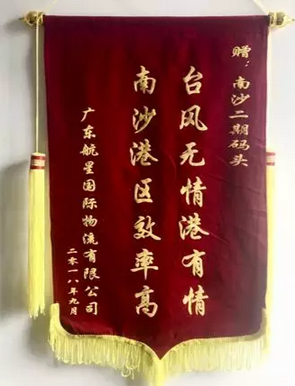 赠：南沙二期码头
台风无情港有情
南沙港区效率高
广东航星国际物流有限公司
二零一八年九月